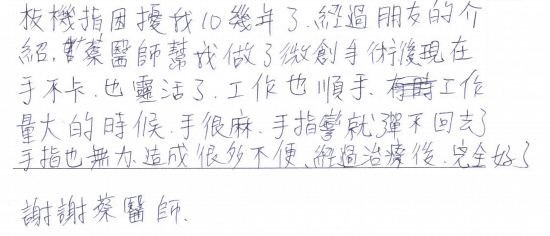 板機指困擾我10幾年了.經過朋友的介
紹.蔡醫師幫我做了微創手術後現在
手不卡.也靈活了.工作也順手.有時工作
量大的時候.手很麻.手指彎就彈不回去了
手指也無力.造成很多不便.經過治療後.完全好了
謝謝蔡醫師.